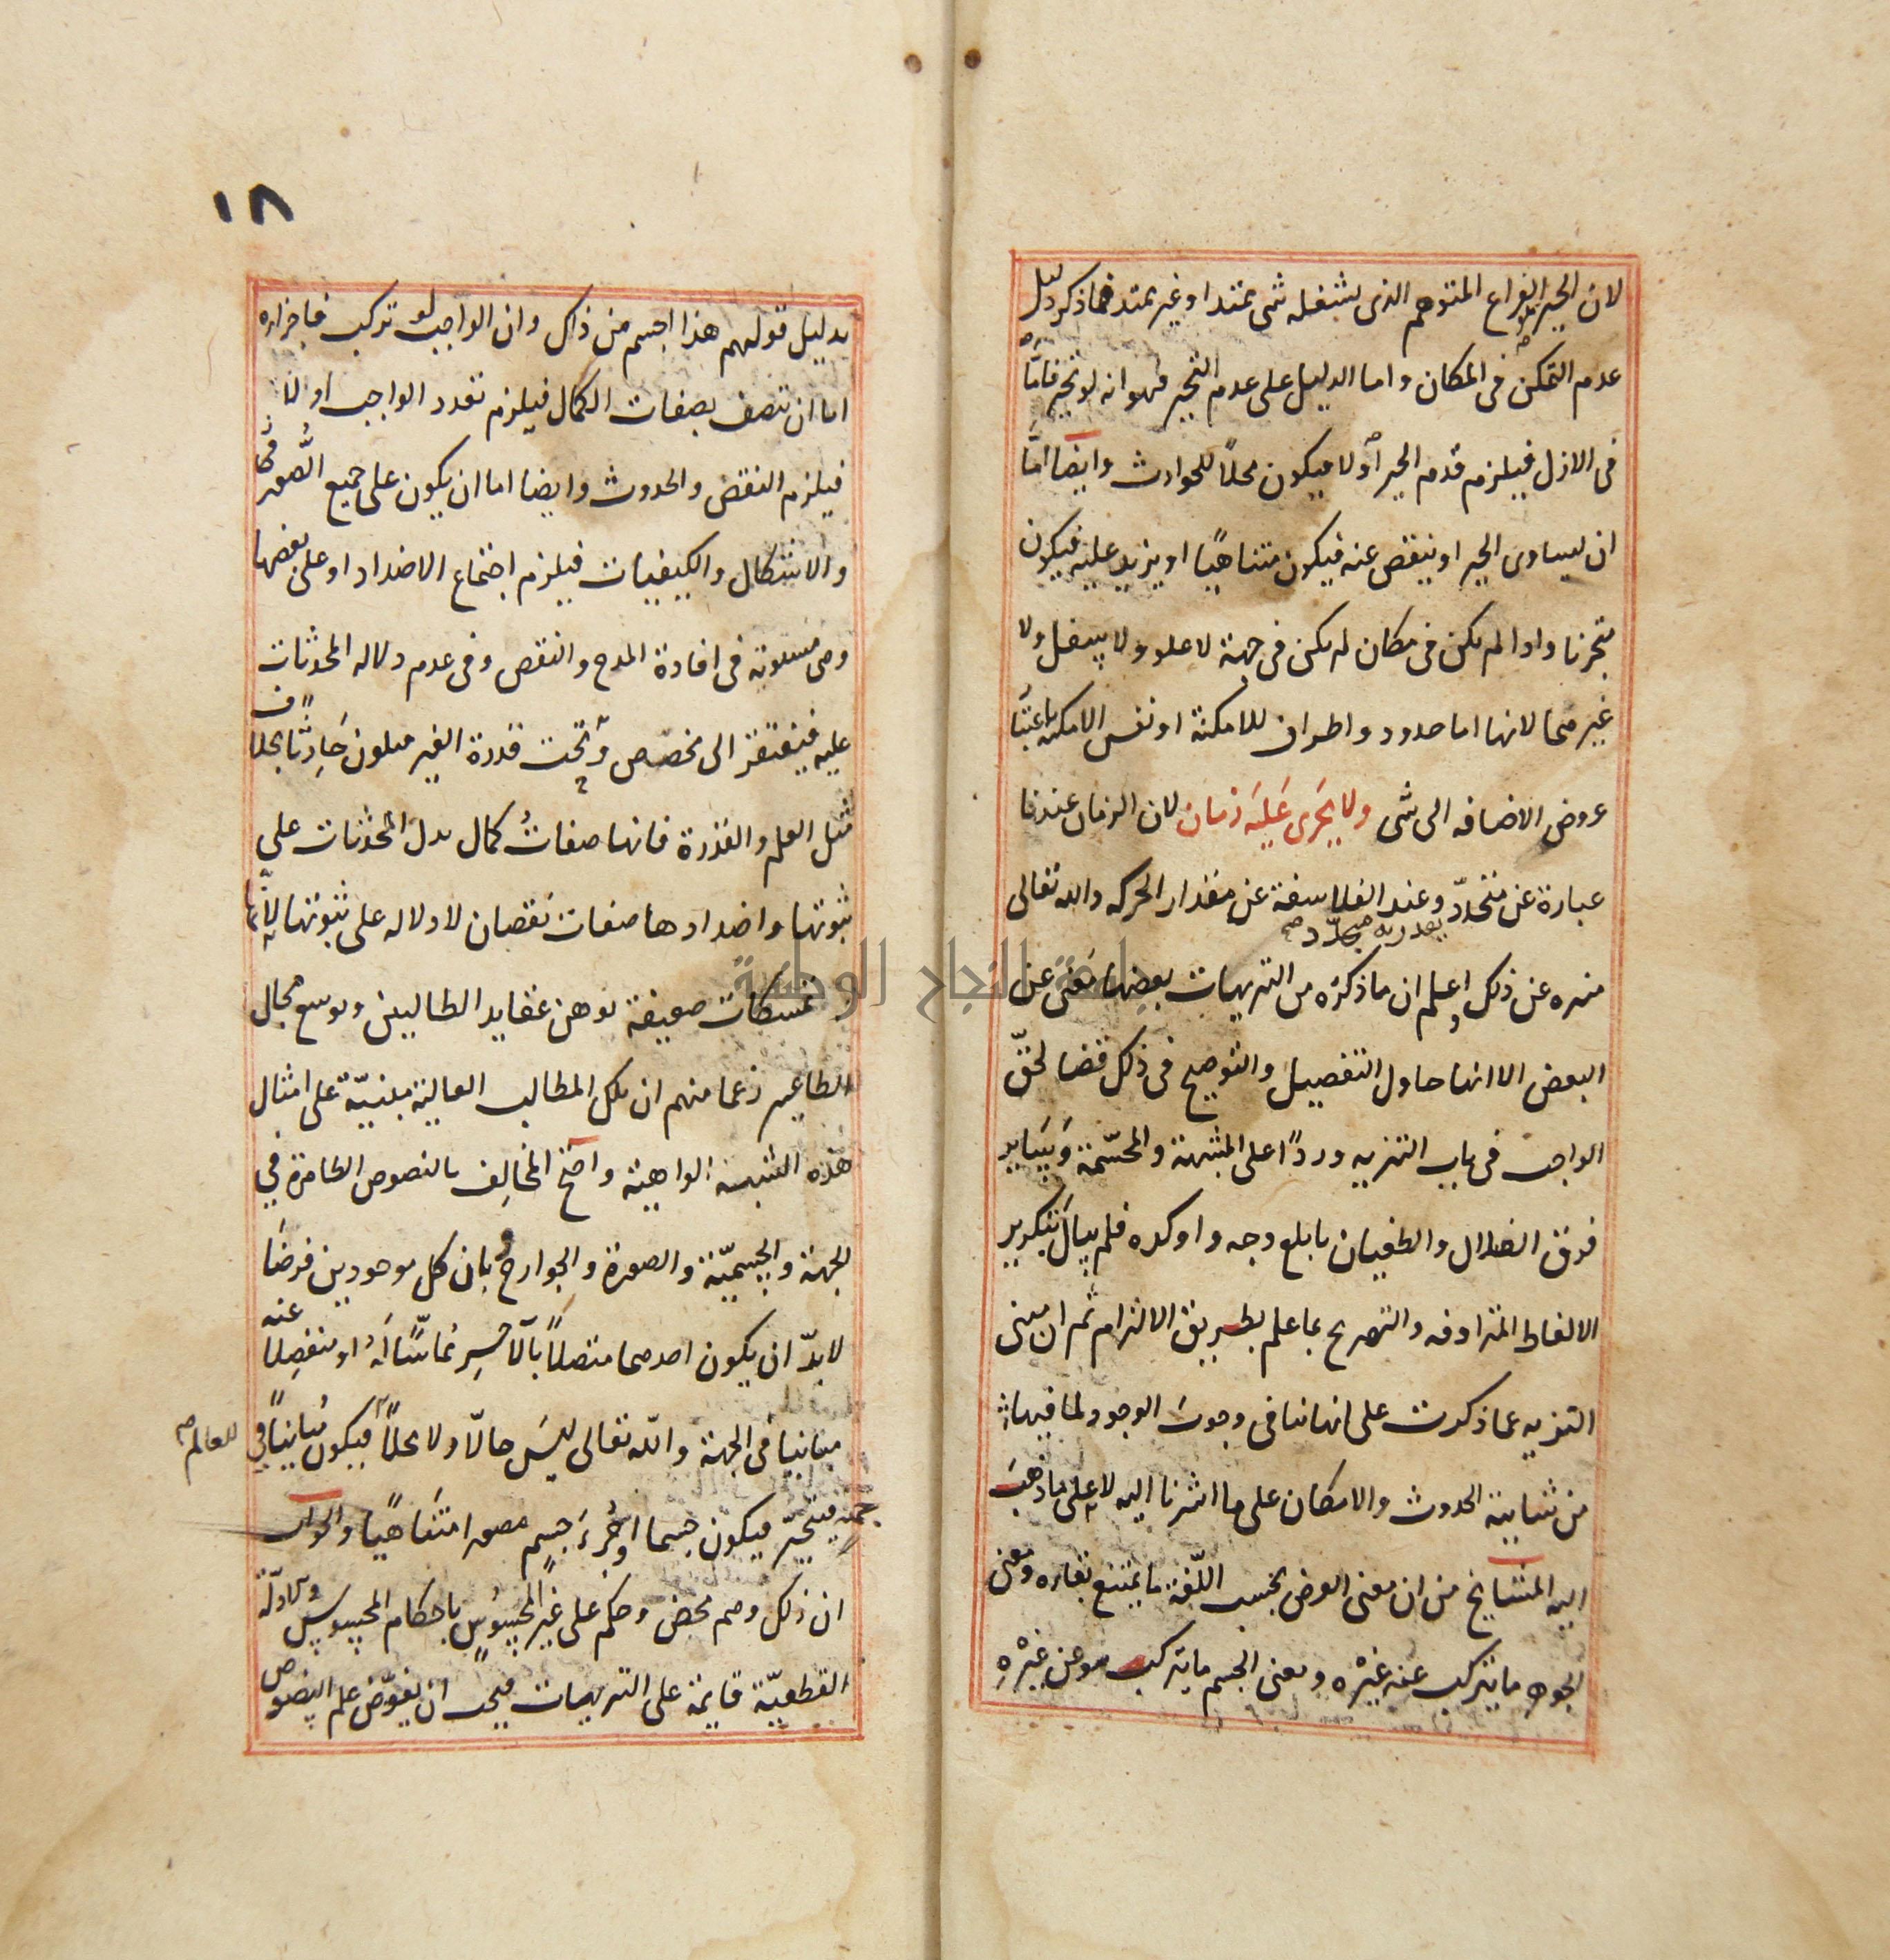 لان الحيز هو الفراغ المتوهم الذى يشغله شى ممتد او غير ممتد فما ذكر دليل
عدم التمكن فى المكان واما الدليل على عدم التحيز فهو انه لو تحيز فاما
فى الازل فيلزم قدم الحيز أو لا فيكون محلاً للحوادث وايضا امّا
ان يساوى الحيز او ينقص عنه فيكون متناهيًا او يزيد عليه فيكون
متجزيا واذا لم يكن فى مكان لم يكن فى جهة لا علو ولا سفل ولا
غيرهما لانها اما حدود واطراف للامكنة او نفس الامكنه باعتبا
عروض الاضافه الى شى ولا يَجَرى عَليَه زمان لان الزمان عندنا
عبارة عن متجدّد وعند الفلاسفة عن مقدار الحركه والله تعالى
يقدر به متجدّد صح
منزه عن ذلك واعلم ان ما ذكره من التنزيهات بعضها يغنى عن
البعض الا انها حاول التفصيل والتوضيح فى ذلك قضا لحقّ
الواجب فى باب التنزيه وردًا على المشبهة والمجسّمة وَسَاير
فرق الضلال والطغيان بابلغ وجه واوكده فلم يبال بتكرير
الالفاظ المترادفه والتصريح بما علم بطريق الالتزام ثم ان مبنى
التنزيه عما ذكرت على انها تنافى وجوبَ الوجود لما فيها
من شايبة الحدوث والامكان على ما اشرنا اليه لا على ما ذهبَ
اليه المشايخ من ان معنى العرض بحسب اللّغة ما يمتنع بقاره ومعنى
الجوهر ما يتركب عنه غيرْه ومعنى الجسم ما يتركب هو عن غيرْهِ
١٨
بدليل قولهم هذا اجسم من ذاك وان الواجب لو تركب فاجزاره
اما ان تتصف بصفات الكمال فيلزم تعدد الواجب او لا
فيلزم النقض والحدوث وايضا اما ان يكون على جميع الصُّور
والاشكال والكيفيات فيلزم اجتماع الاضداد او على بعضها
وهى مستوية فى افادة المدح والنقص وفى عدم دلاله المحدثات
عليه فيفتقر الى مخصص وتحت قدرة الغير فيكون حَادِثًا بخلاف
مثل العلم والقدرة فانها صفاتُ كمال تدل المحدثات على
ثبوتها واضدادها صفات نقصان لا دلاله على ثبوتها لانّها
تمسكات ضعيفة توهن عقايد الطالبين وتوسع مجال
الطاعين زعما منهم ان تلك المطالب العالية مبنيّة على امثال
هذه الشبه الواهية واحتج المخالِف بالنصوص الظاهرة في
الجهة والجسميّة والصورة والجوارح وبان كل موجودين فرضَا
لا بدّ ان يكون احدهما متصلاً بالآخِرِ مُماسًّا لَهُ او منفصلا عنه
مباينا فى الجهة والله تعالى ليسَ حالّا ولا محلاًّ فيكون مُبايناً في
للعالم صح
جهة فيتحيّز فيكون جسما او جُزءَ جسِم مصورا متنَاهيًا والجواب
ان ذلك وهم محض وحكم على غير المحسوُسِ باحكام المحسوس والادلّة
القطعيّة قايمة على التنزيهات فيجب ان يفوّض علم النصوص